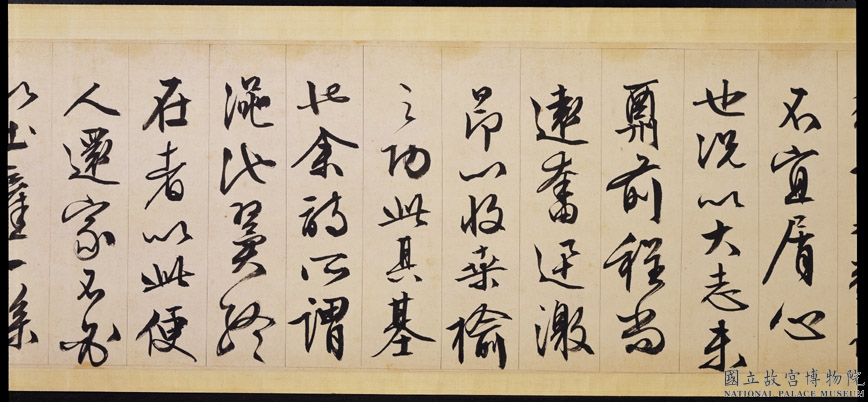 不宜屑心
也況以大志未
酬前程尚
遠奮迅激
昂以收桑榆
之功此其基
也余詩所謂
澠池翼終
在者以此便
人還家不
國立故宮博物院
NATIONAL PALACE MUSEUM